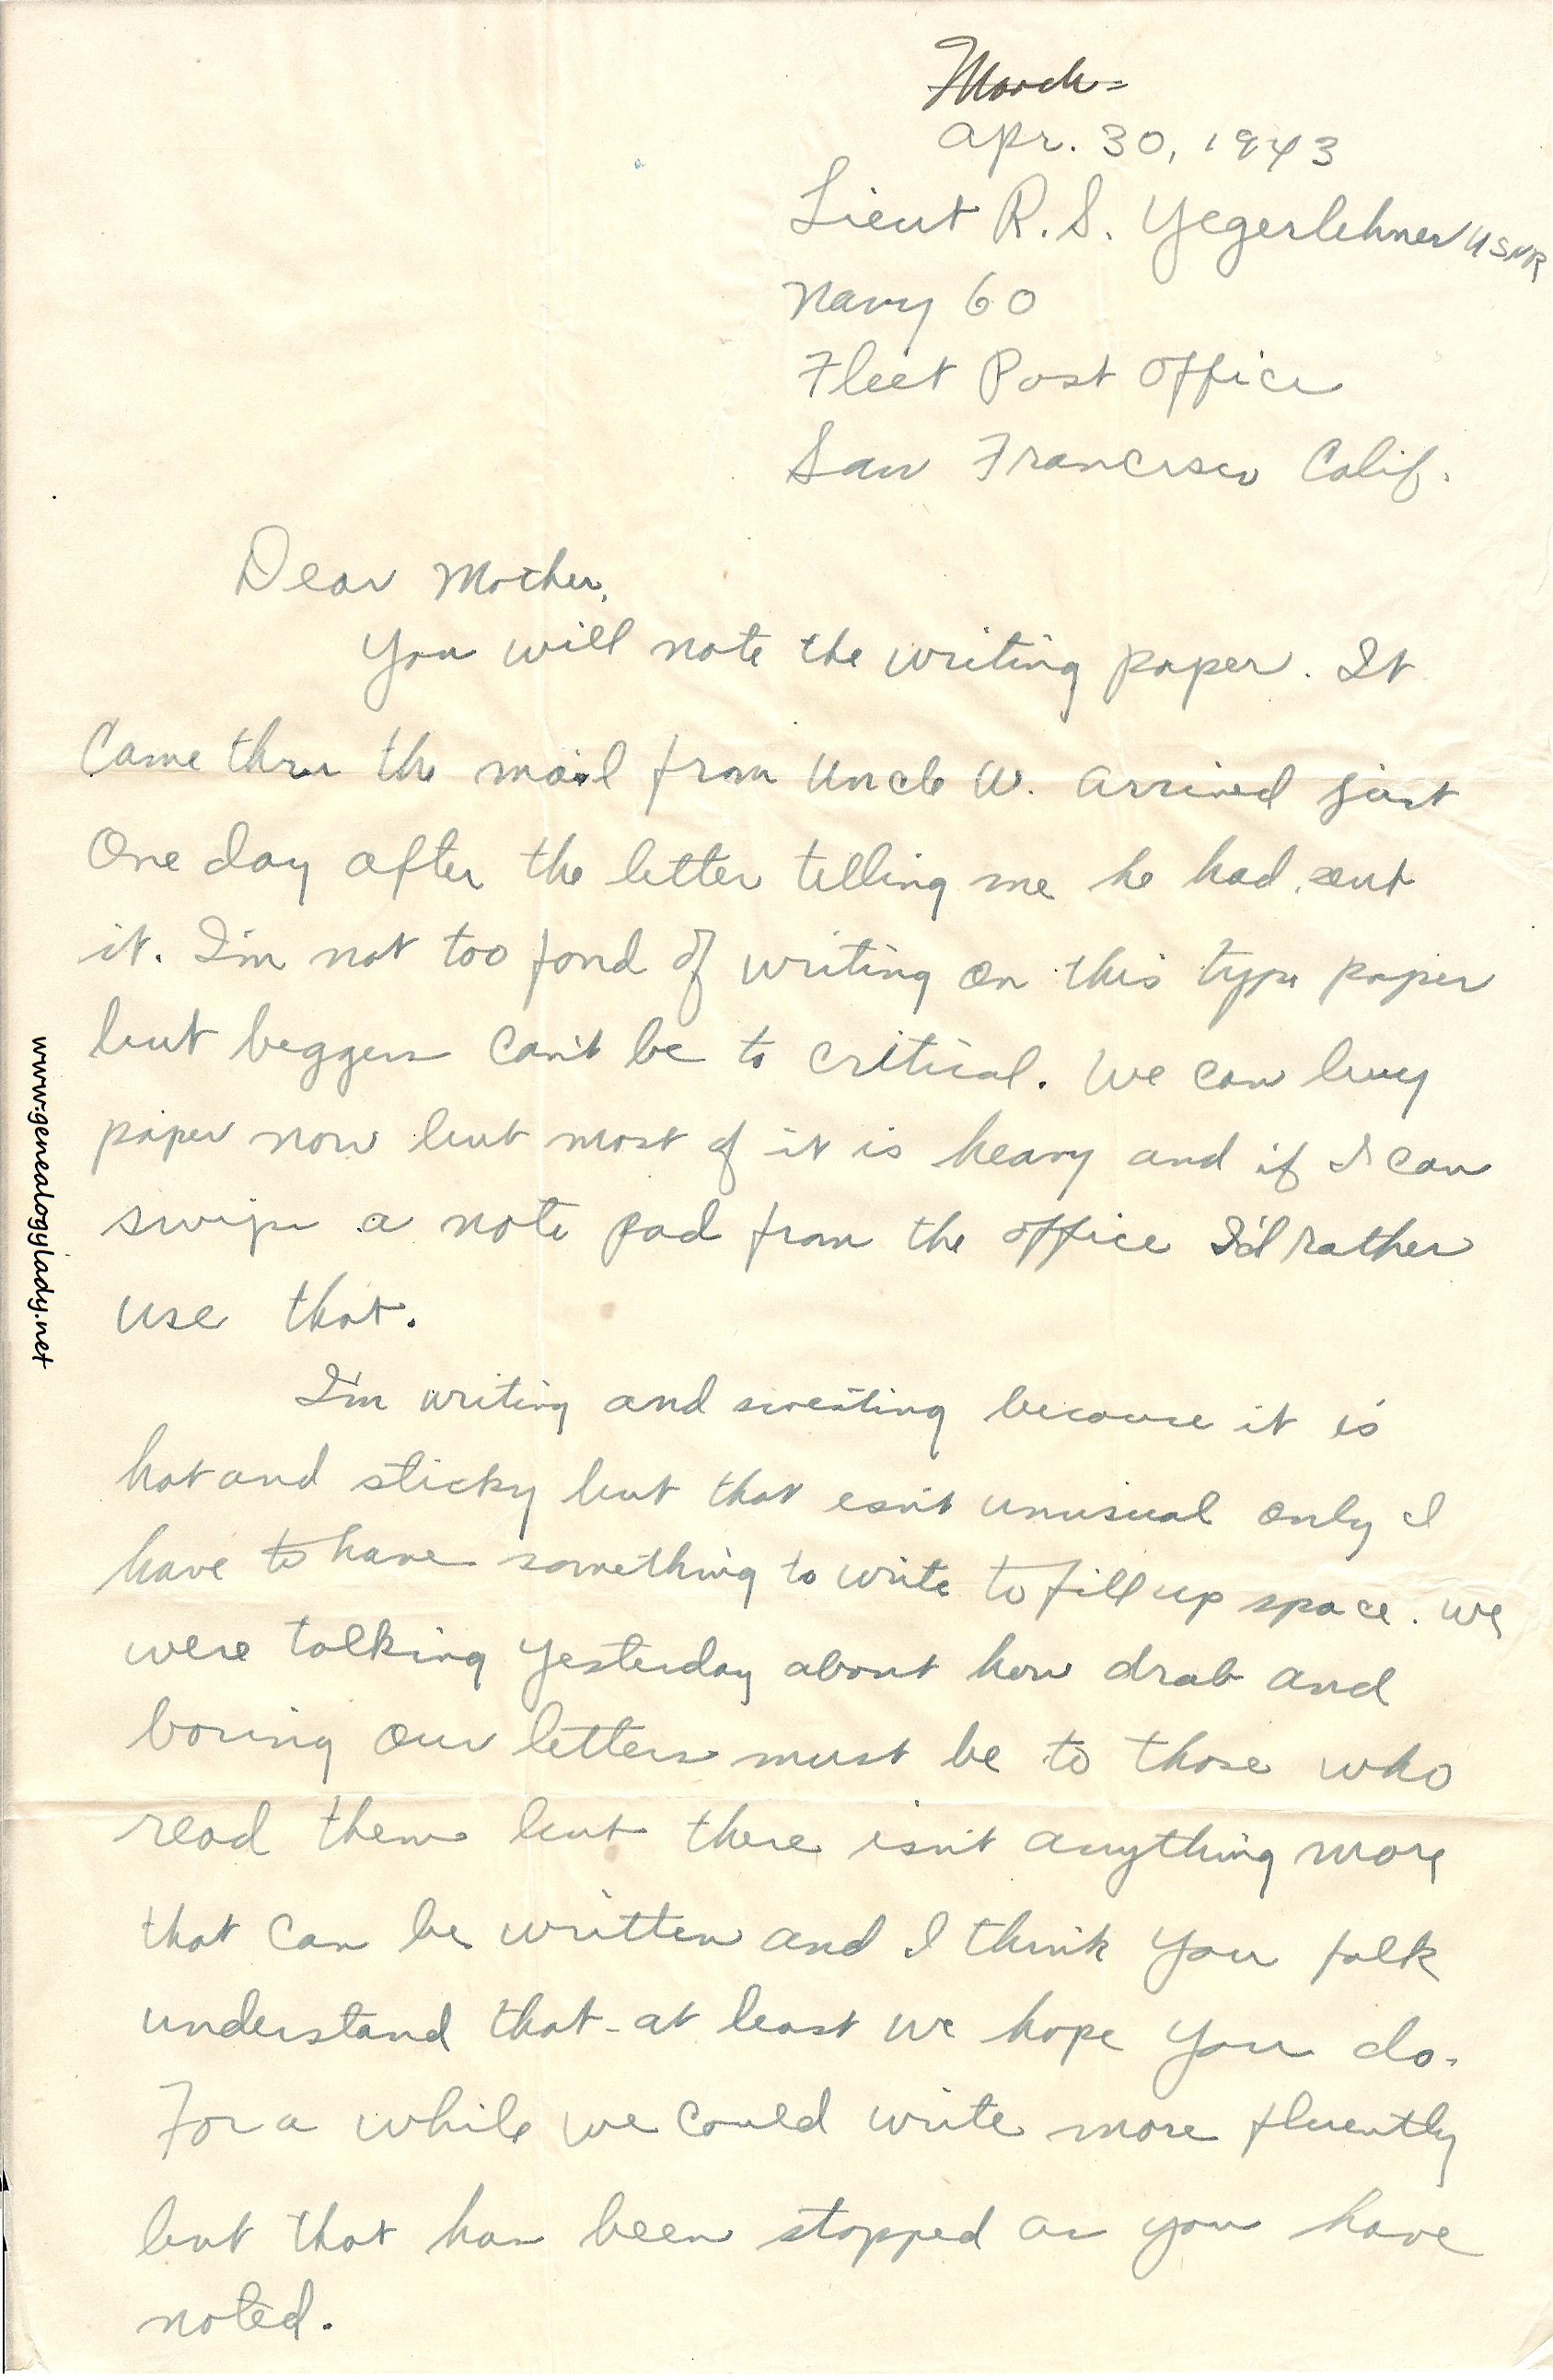 March
Apr. 30, 1943
Lieut R.S. Yegerlehner USNR
Navy 60
Fleet Post Office
San Francisco Calif.
Dear Mother,
You will note the writing paper. It
came thru the mail from Uncle W. Arrived just
one day after the letter telling me he had sent
it. I'm not too fond of writing on this type paper
but beggers can't be to critical. We can buy
paper now but most of it is heavy and if I can
swipe a note pad from the office I'd rather
use that.
I'm writing and sweating because it is
hot and sticky but that isn't unusual only I
have to have something to write to fill up space. We
were talking yesterday about how drab and
boring our letters must be to those who
read them but there isn't anything more
that can be written and I think you folk
understand that - at least we hope you do.
For a while we could write more fluently
but that has been stopped as you have
noted.
www.genealogylady.net